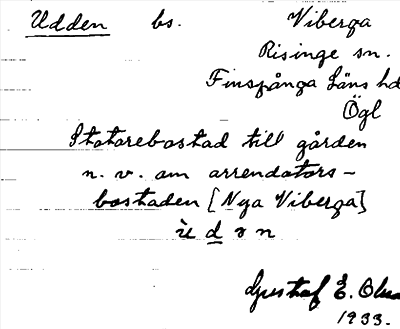 Udden bs. Viberga
Risinge sn.
Finspånga Läns hd
Ögl
Statarebostad till gården
n. v. om arrendators-
bostaden [Nya Viberga]
ù d ɘ n
Gustaf E. Olss
1933.